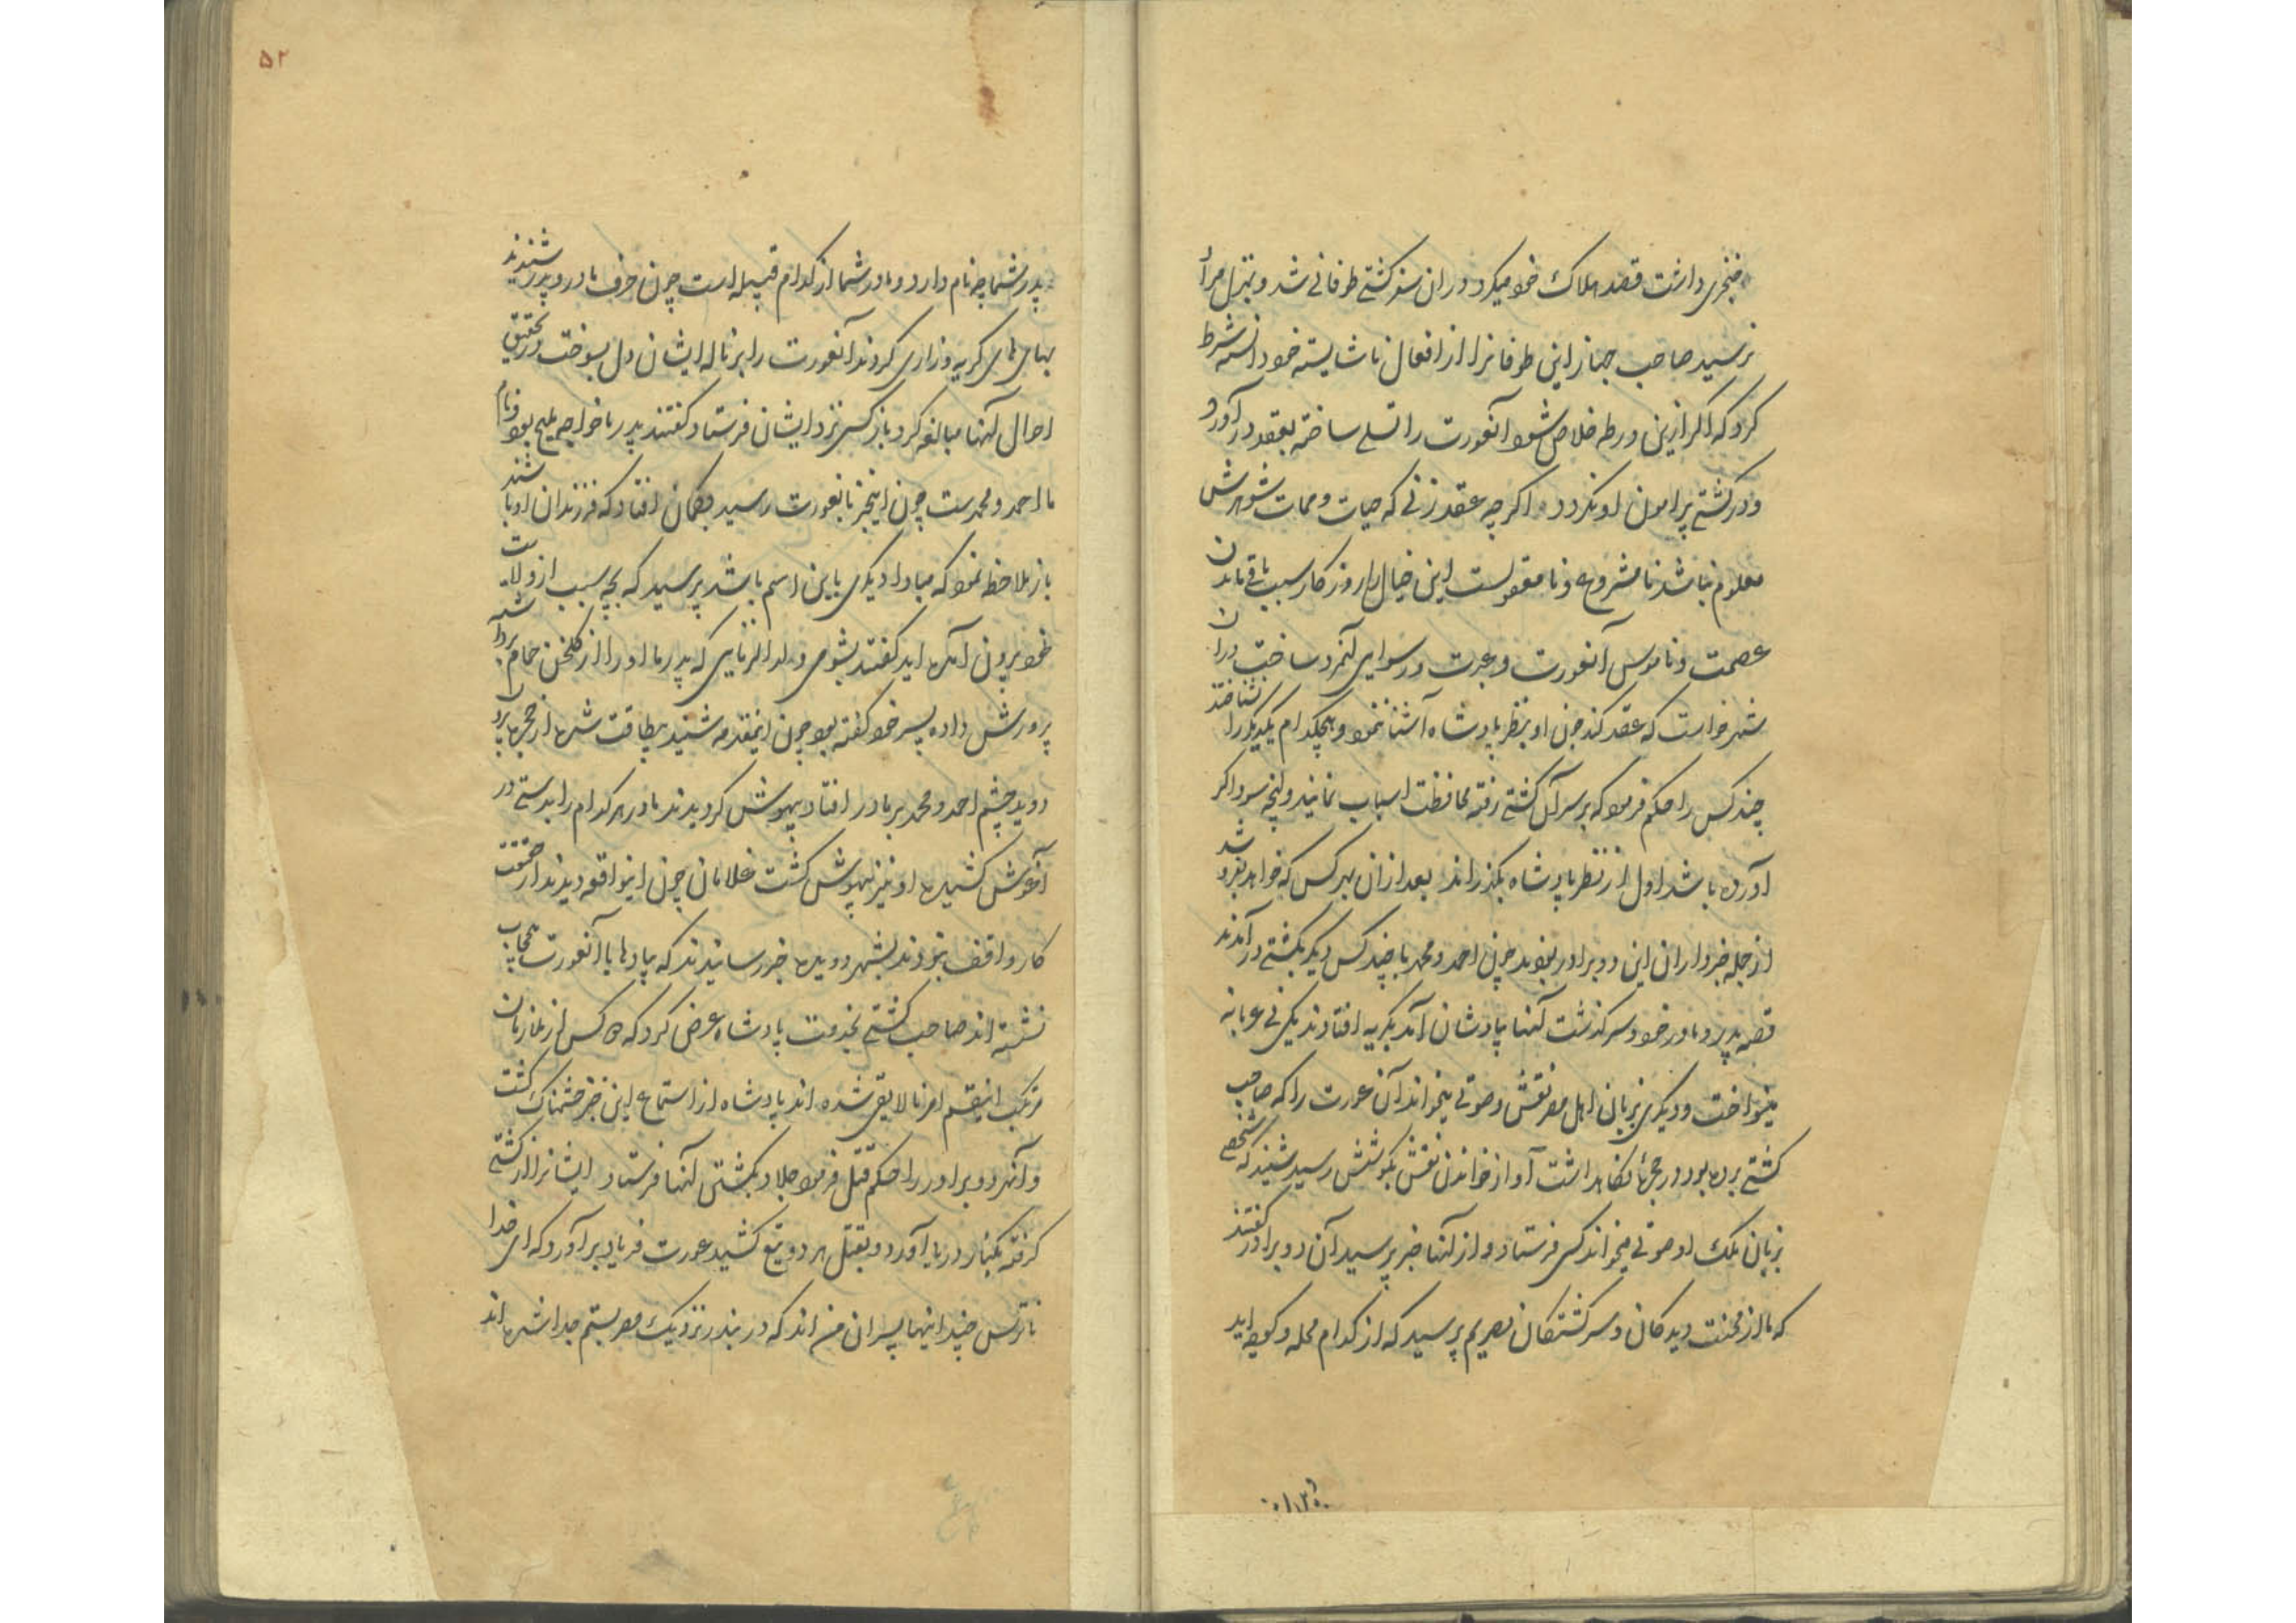 خنجری داشت قصد هلاک خود میکرد دران سفر کشتے طوفانے شد و بمنزل مراد
نرسید صاحب جهاز این طوفانرا از افعال ناشایسته خود دانسته شرط
کرد که اگر ازین ورطه خلاص شود آنعورت را تسلے ساخته بعقد درآورد
و در کشتے پیرامون او نکردد اگرچه عقد زنے که حیات و ممات شوهرش
معلوم نباشد نامشروع و نامعقولست این خیال را روزکار سبب باقے ماندن
عصمت و ناموس آنعورت و عبرت و رسوای آنمرد ساخت دران
شهر خواست که عقد کند چون او بنظر پادشاه آشنا نمود و هیچکدام یکدیکر را نشناختند
چند کس را حکم فرمود که بر سر آن کشتے رفته محافظت اسباب نمایند و آنچه سوداکر
آورده باشد اول از نظر پادشاه بکذراند بعد ازان بهر کس که خواهد بفروشد
از جمله خبرداران این دو برادر بودند چون احمد و محمد با چند کس دیکر بکشتے درآمدند
قصه پدر و مادر خود و سرکذشت آنها بیادشان آمد بکریه افتادند یکی نے عربانه
مینواخت و دیکری بزبان اهل مصر نقش و صوتے میخواند آن عورت را که صاحب
کشتے برده بود در حجره نکاهداشت آواز خواندن نقش بکوشش رسید شنید که شخصے
بزبان ملک او صوتے میخواند کسی فرستاد و از آنها خبر پرسید آن دو برادر کفتند
که ما از محنت دیدکان و سرکشتکان مصریم پرسید که از کدام محله و کوچه اید
پدر شما چه نام دارد و مادر شما از کدام قبیله است چون حرف مادر و پدر شنیدند
بهای های کریه و زاری کردند آنعورت را بر ناله ایشان دل بسوخت و در تحقیق
احوال آنها مبالغه کرد باز کسی نزد ایشان فرستاد کفتند پدر ما خواجه ملیح بود و نام
ما احمد و محمدست چون اینخبر بآنعورت رسید بکمان افتاد که فرزندان او باشند
باز ملاحظه نمود که مبادا دیکری باین اسم باشد پرسید که بچه سبب از ولایت
خود بیرون آمده اید کفتند بشومی ولد الزنایی که پدر ما او را از کلخن حمام برداشته
پرورش داده پسر خود کفته بود چون اینمقدمه شنید بیطاقت شده از حجره بیرون
دوید چشم احمد و محمد بر مادر افتاد بیهوش کردیدند مادر هر کدام را بدستے در
آغوش کشیده او نیز بیهوش کشت غلامان چون اینواقعه دیدند از حقیقت
کار واقف نبودند بشهر دویده خبر رسانیدند که پیادها با آنعورت بیحجاب
نشسته اند صاحب کشتے بخدمت پادشاه عرض کرد که کس از ملازمان
مرتکب اینقسم امر نالایقی شده اند پادشاه از استماع این خبر خشمناک کشت
و آنهر دو برادر را حکم قتل فرمود جلاد بکشتن آنها فرستاد ایشانرا از کشتے
کرفته بکنار دریا آورد و بقتل هر دو تیغ کشید عورت فریاد برآورد که ای خدا
ناترس چند اینها پسران من اند که در بندر نزدیک مصر بستم جدا شده اند
۵۲